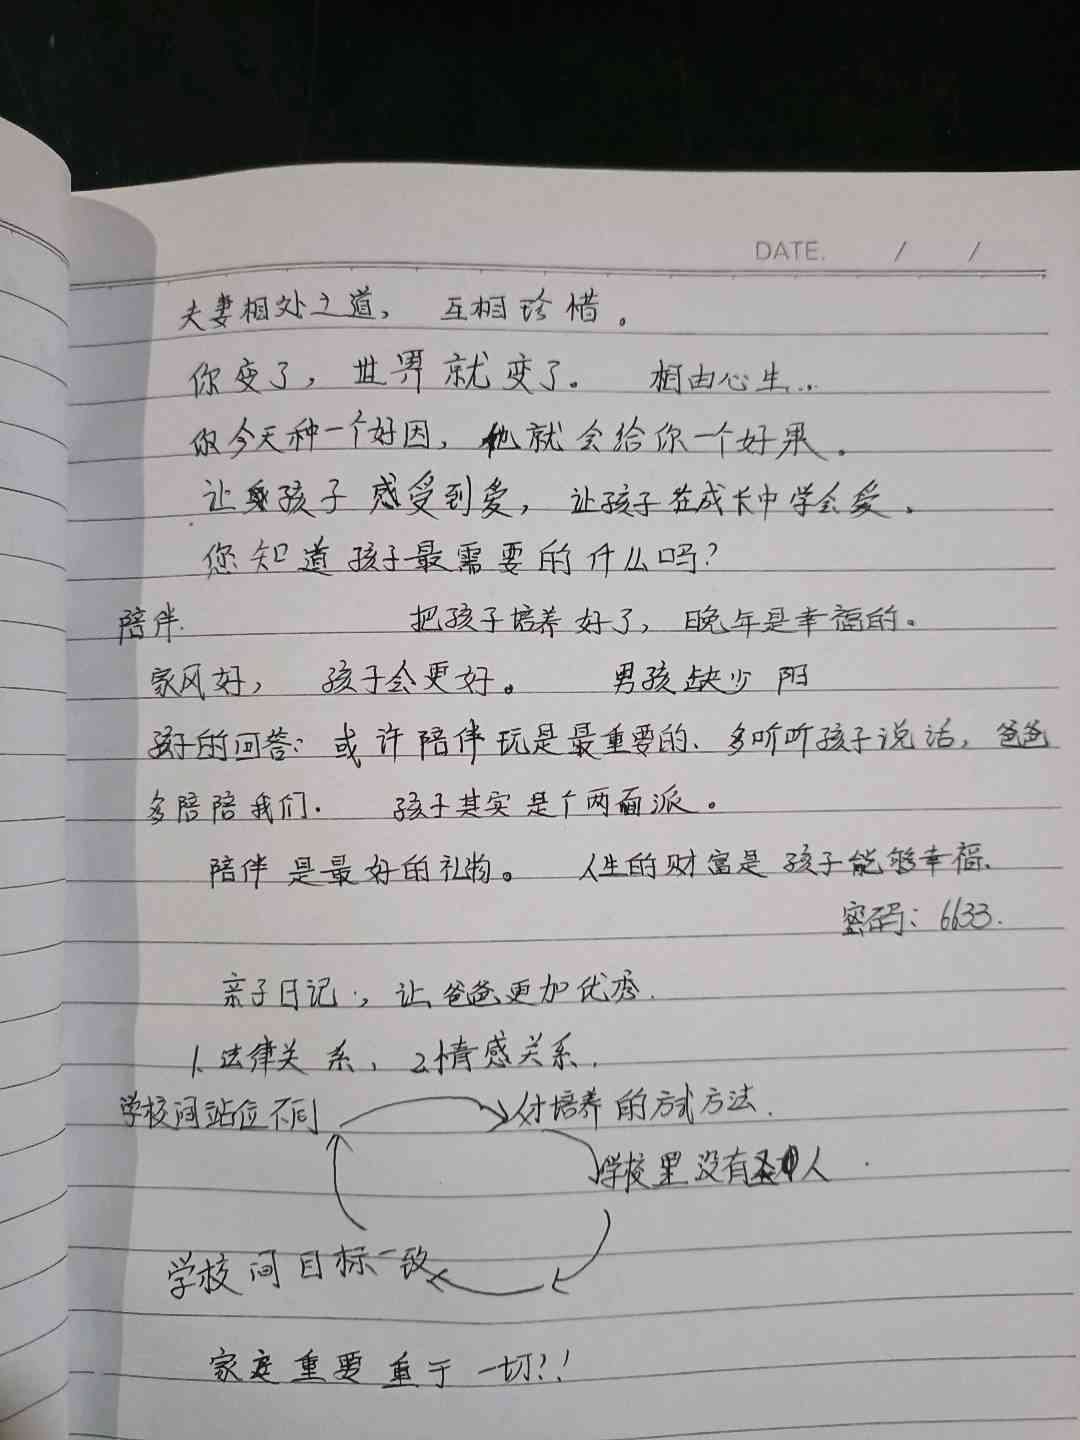 DATE. / /
夫妻相处之道, 互相珍惜。
你变了, 世界就变了。 相由心生...
你今天种一个好因, 他就会给你一个好果。
让孩子感受到爱, 让孩子在成长中学会爱.
您知道孩子最需要的什么吗?
陪伴. 把孩子培养好了, 晚年是幸福的。
家风好, 孩子会更好。 男孩缺少 阳
孩子的回答: 或许陪伴玩是最重要的. 多听听孩子说话, 爸爸
多陪陪我们. 孩子其实是个两面派。
陪伴是最好的礼物。 人生的财富是孩子能够幸福.
密码: 6633.
亲子日记., 让爸爸更加优秀.
1. 法律关系, 2.情感关系.
学校间站位不同 对培养的方式方法.
学校里没有人
学校间目标一致
家庭重要重于一切?!